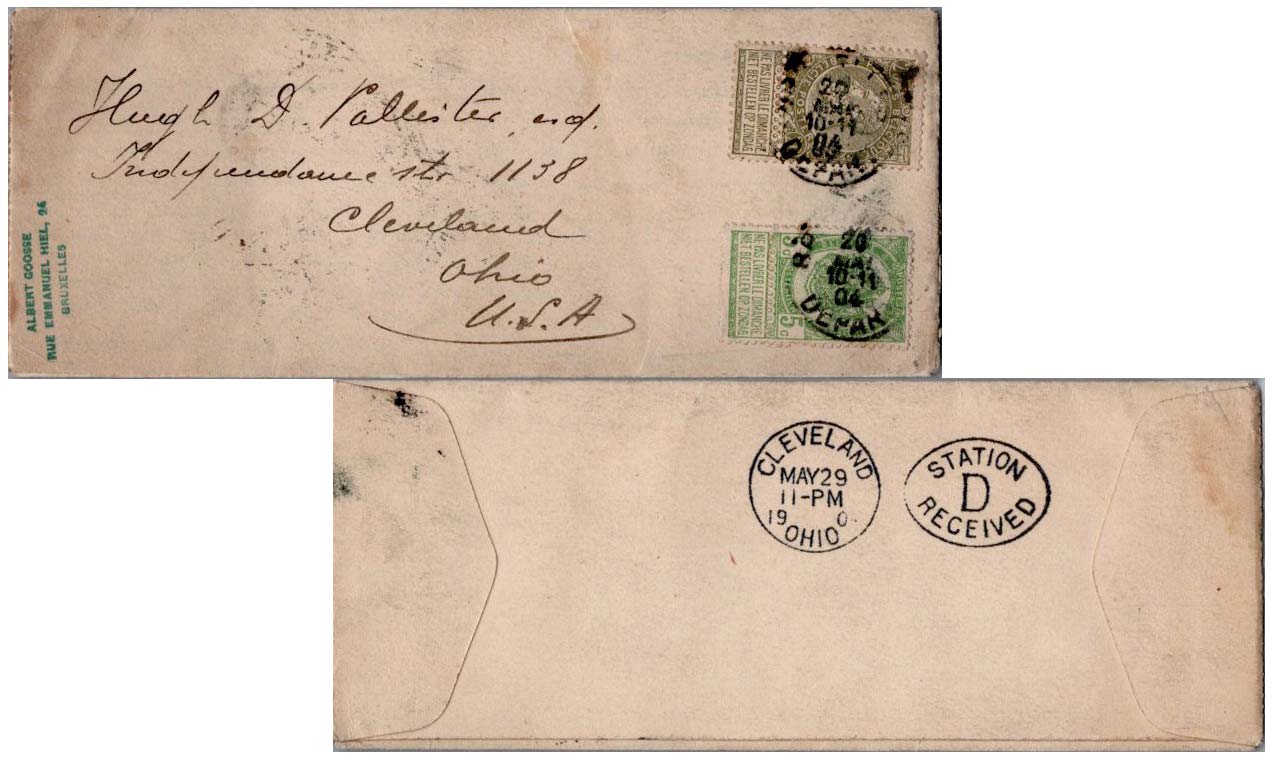 Hugh D. Pallister, esq.
Independance str 1138
Cleveland
Ohio
U.S.A
ALBERT GOOSSE
RUE EMMANUEL HIEL, 24
BRUXELLES
NE PAS LIVRER LE DIMANCHE
NIET BESTELLEN OP ZONDAG
20
10-11
04
DEPART
NE PAS LIVRER LE DIMANCHE
NIET BESTELLEN OP ZONDAG
5c
5c
20
MAI
10-11
04
DEPAR
CLEVELAND
MAY 29
11-PM
19 0
OHIO
STATION
D
RECEIVED